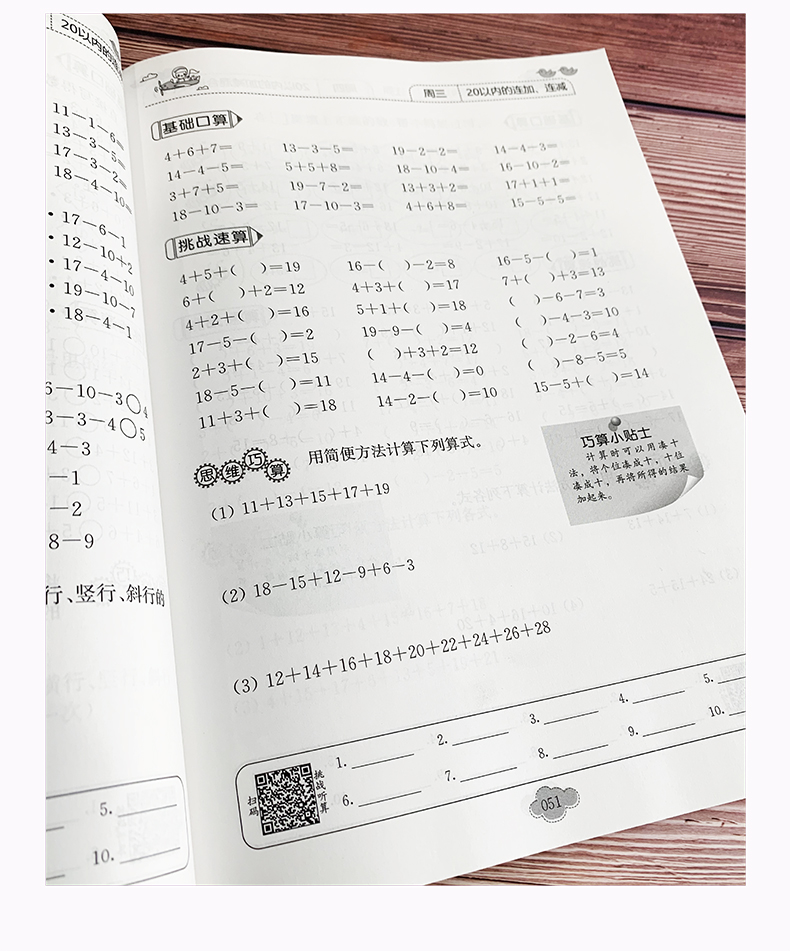 20以内的连
11-1-6=
13-3-5=
17-3-2=
18-4-10=
• 17-6-1
• 12-10+2
• 17-4-10
• 19-10-7
• 18-4-1
6-10-3○4
3-3-4○5
4-3
-1
-2
8-9
行、竖行、斜行的
5.
10.
周三 20以内的连加、连减
基础口算
4+6+7= 13-3-5= 19-2-2= 14-4-3=
14-4-5= 5+5+8= 18-10-4= 16-10-2=
3+7+5= 19-7-2= 13+3+2= 17+1+1=
18-10-3= 17-10-3= 4+6+8= 15-5-5=
挑战速算
4+5+( )=19 16-( )-2=8 16-5-( )=1
6+( )+2=12 4+3+( )=17 7+( )+3=13
4+2+( )=16 5+1+( )=18 ( )-6-7=3
17-5-( )=2 19-9-( )=4 ( )-4-3=10
2+3+( )=15 ( )+3+2=12 ( )-2-6=4
18-5-( )=11 14-4-( )=0 ( )-8-5=5
11+3+( )=18 14-2-( )=10 15-5+( )=14
思维巧算 用简便方法计算下列算式。
巧算小贴士
计算时可以用凑十
法，将个位凑成十，十位
凑成十，再将所得的结果
加起来。
(1) 11+13+15+17+19
(2) 18-15+12-9+6-3
(3) 12+14+16+18+20+22+24+26+28
扫码
挑战听算
1. 2. 3. 4. 5.
6. 7. 8. 9. 10.
051